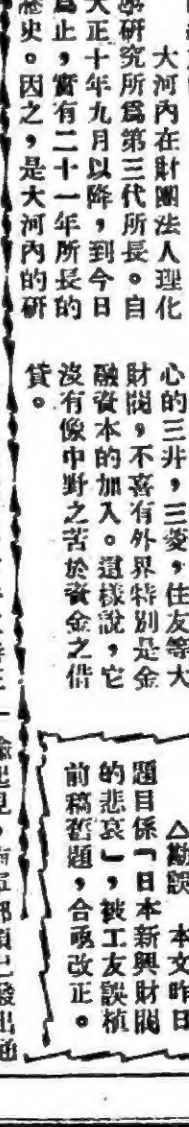 大河內在財團法人理化
學研究所爲第三代所長。自
大正十年九月以降,到今日
爲止,實有二十一年所長的
歷史。因之,是大河內的研
心的三井,三菱,住友等大
財閥,不喜有外界特別是金
融資本的加入。這樣說,它
沒有像中野之苦於資金之借
貸。
△勘誤 本文昨日
題目係「日本新興財閥
的悲哀」,被工友誤植
前稿舊題,合亟改正。